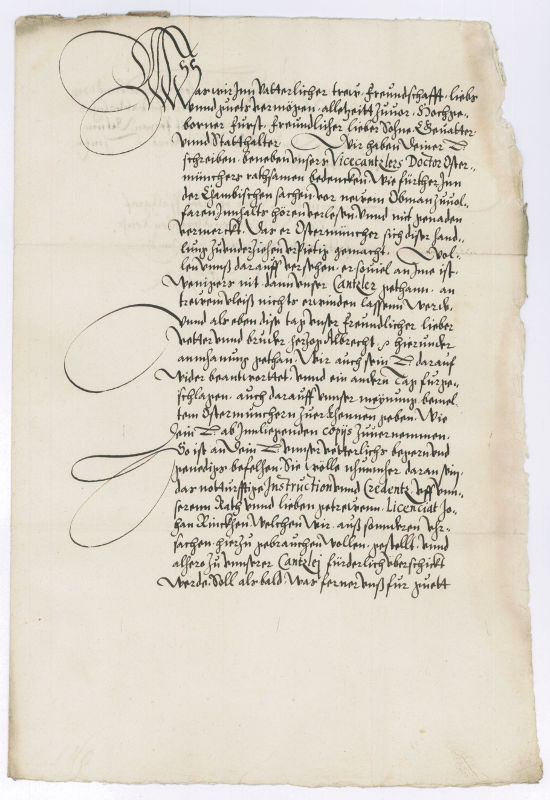 Was wir Inn Vatterlicher trew, freundschafft, liebs
vnnd guets vermögen, alletzeitt zuuor, Hochge-
borner Fürst, freundlicher lieber Sohne, Geuatter
vnnd Statthalter, Wir haben Deiner L
schreiben, beneben vnsers Vicecantzlers Doctor Oster-
münchers rathsamen bedencken, Wie fürther Inn
der Chambischen sachen vor newem Obman zuuol-
faren Innhalts hören verlesen, Vnnd mit genaden
vermerckt, Das er Ostermüncher sich diser hand-
lung zu vnderziehen vrpietig gemacht, Wol-
len vnnß darauff versehen, er souiel an Ime ist,
Wenigers nit, dann vnser Cantzler gethann, an
trewem vleiß nichts erwinden lassenn werde,
Vnnd als eben dise tag vnser freundlicher lieber
vetter vnnd bruder hertzog Albrecht, hierunder
annhanung gethan, Wir auch sein L darauf
wider beantworttet, vnnd ein andern Tag fürge-
schlagen, auch darauff vnnser meynung, bemel-
tem Ostermünchern zuerkhennen geben, Wie
Dein L ab Innligenden copijs zuuernemmen,
So ist an Dein L vnnser vetterlichs begern vnd
genedigs befelhen, Sie wolle nhunmher daran sein,
das notturfftige Instruction vnnd Credentz vff vnn-
serem Rath vnnd lieben getrewenn, Licenciat Jo-
han Rückhen, welchen wir, auß sonnderen vhr-
sachen, hierzu gebrauchen wollen, gestellt, vnnd
alhero zu vnnserer Cantzlej fürderlich vberschickt
werde, Soll als bald, was ferner vnß für guett